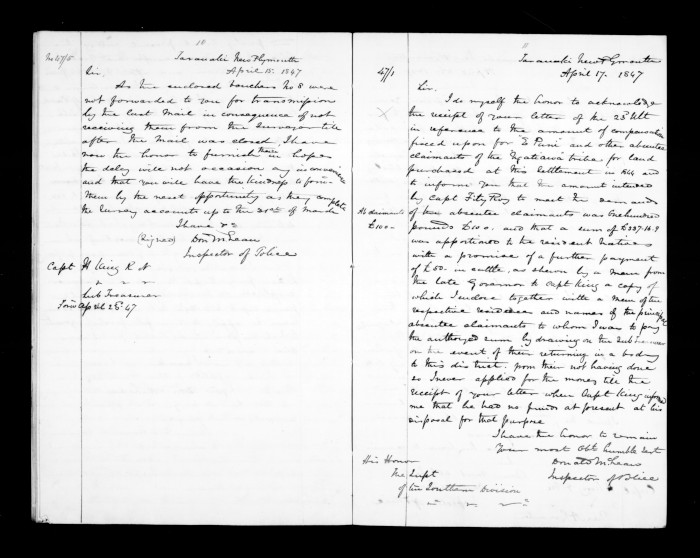 10
No 47/5
Taranaki New Plymouth
April 15. 1847
Sir.
As the enclosed vouchers No 8 were
not forwarded to you for transmission
by the last Mail in consequence of not
receiving them from the Surveyor till
after the Mail was closed I have
now the honor to furnish them in hopes
the delay will not occasion any inconvenience
and that you will have the kindness to forw
them by the next opportunity as they complete
the Survey accounts up to the 31st of March
I have &c
(Signed) Don McLean
Inspector of Police
Capt H King R N
Sub Treasurer
Forw April 28. 47
11
Taranaki New Plymouth
47/1
April 17. 1847
Sir.
I do myself the honor to acknowledge
the receipt of your letter of the 23 Ult
in reference to the amount of compensation
fixed upon for E Puni and other absentee
claimants of the Ngatiawa tribe for land
purchased at this settlement in 1844 and
to inform you that the amount intended
by Capt FitzRoy to meet the demands
Ab claimants
£100 -
of the absentee claimants was One hundred
pounds £100. and that a sum of £237.16.9
was apportioned to the resident natives
with a promise of a further payment
of £50. in cattle, as shewn by a memo from
the late Governor to Capt King a copy of
which I enclose together with a memo of the
respective residences and names of the principal
absentee claimants to whom I was to pay
the authorized sum by drawing on the Sub Treasurer
on the event of their returning in a body
to this district, from their not having done
so I never applied for the money till the
receipt of your letter when Capt King informed
me that he had no funds at present at his
disposal for that purpose
I have the honor to remain
Your most Obt humble Svt
Donald McLean
Inspector of Police
His Honor
The Supt
of the Southern Division